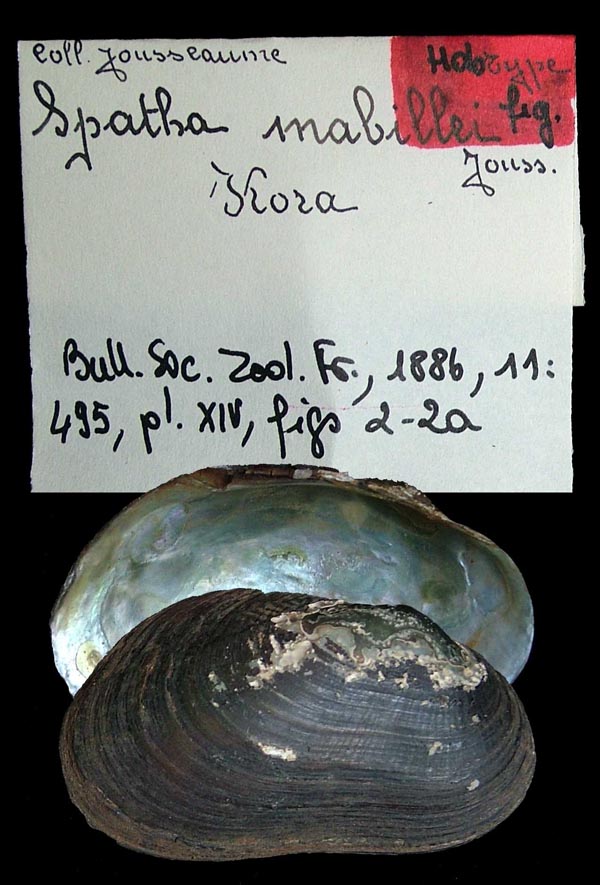 Coll. Jousseaume
Holotype
fig.
Spatha mabillei
Jouss.
Kora
Bull. Soc. Zool. Fr., 1886, 11:
495, pl. XIV, figs 2-2a